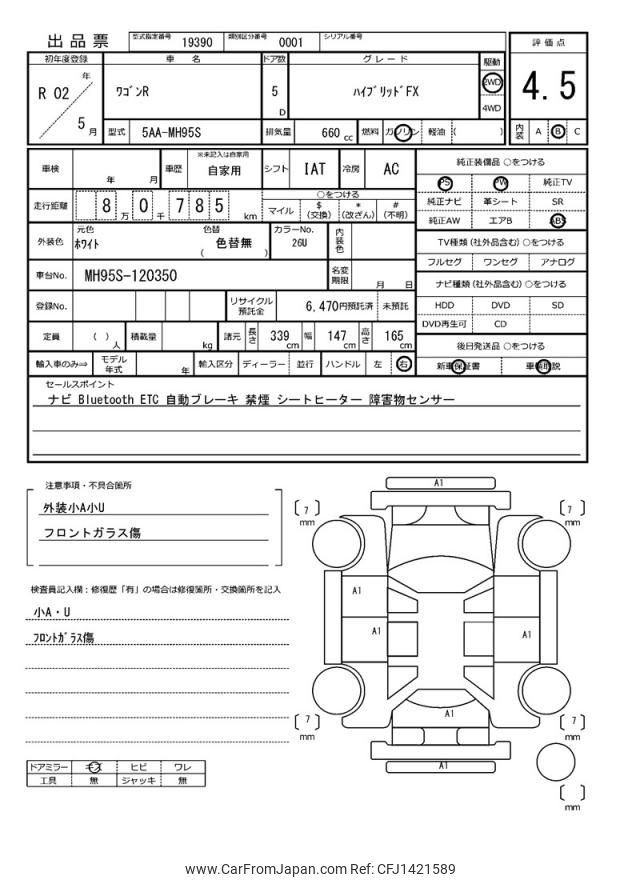 出品票 型式指定番号 19390 類別区分番号 0001 シリアル番号
評価点
4.5
内装 A B C
初年度登録 車名 ドア数 グレード 駆動
R 02 年 5 月 ワゴンR 5 D ハイブリッドFX 2WD 4WD
型式 5AA-MH95S 排気量 660 cc 燃料 ガソリン 軽油 ( )
車検 年 月 車歴 ※未記入は自家用 自家用 シフト IAT 冷房 AC
走行距離 8 万 0 千 785 km ○をつける
マイル $ (交換) * (改ざん) # (不明)
外装色 元色 ホワイト 色替 色替無 ( ) カラーNo. 26U 内装色
車台No. MH95S-120350 名変期限 月 日
登録No. リサイクル預託金 6,470円預託済 未預託
定員 ( ) 人 積載量 kg 諸元 長さ 339 cm 幅 147 cm 高さ 165 cm
輸入車のみ⇒ モデル年式 年 輸入区分 ディーラー 並行 ハンドル 左 右
純正装備品 ○をつける
PS PW 純正TV
純正ナビ 革シート SR
純正AW エアB ABS
TV種類(社外品含む) ○をつける
フルセグ ワンセグ アナログ
ナビ種類(社外品含む) ○をつける
HDD DVD SD
DVD再生可 CD
後日発送品 ○をつける
新車保証書 車輌取説
セールスポイント
ナビ Bluetooth ETC 自動ブレーキ 禁煙 シートヒーター 障害物センサー
注意事項・不具合箇所
外装小A小U
フロントガラス傷
検査員記入欄：修復歴「有」の場合は修復箇所・交換箇所を記入
小A・U
フロントガラス傷
ドアミラー キズ ヒビ ワレ
工具 無 ジャッキ 無
A1
〔 7 〕 mm
〔 7 〕 mm
A1
A1
A1
A1
〔 7 〕 mm
〔 7 〕 mm
A1
〔 〕 mm
www.CarFromJapan.com Ref: CFJ1421589